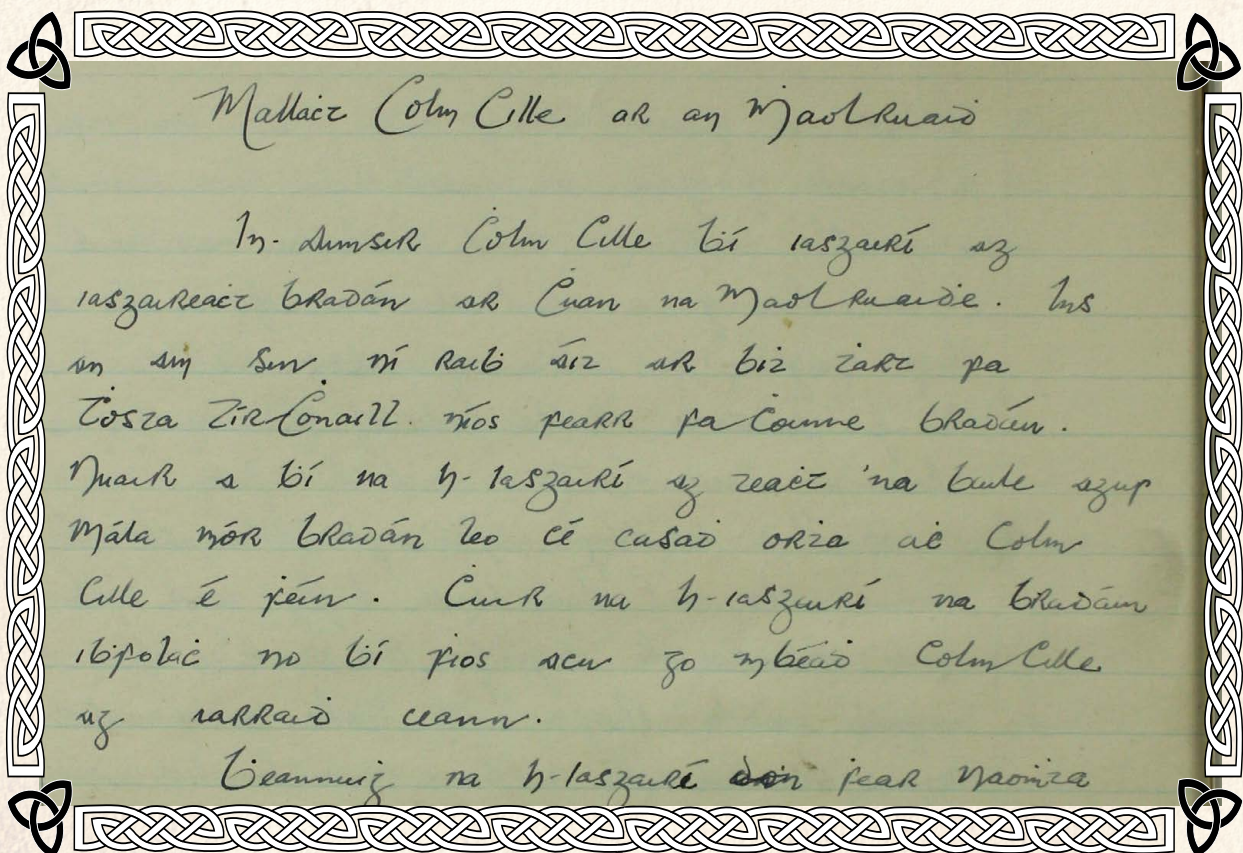 Mallaċt Colm Cille ar an Maol Ruaiḋ
In-aimsir Ċolm Cille ḃí iasgairí ag
iasgaireaċt bradán ar Ċuan na Maol Ruaiḋe. Ins
an am sin ní raiḃ áit ar biṫ ṫart fa
ċósta Ṫír Ċonaill. níos fearr fa ċoinne bradán.
Nuair a ḃí na h-iasgairí ag teaċt 'na ḃaile agus
mála mór bradán leo cé casaḋ orṫa aċ Colm
Cille é féin. Ċuir na h-iasgairí na bradáin
i bfolaċ no ḃí fios acu go mbéaḋ Colm Cille
ag iarraiḋ ceann.
Ḃeannuiġ na h-iasgairí don fear naoṁṫa